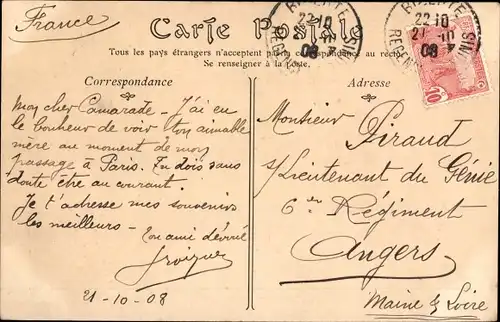 France
Carte Postale
Tous les pays étrangers n'acceptent pas la correspondance au recto
Se renseigner à la Poste.
Correspondance
Adresse
Mon cher Camarade - J'ai eu
le bonheur de voir ton aimable
mère au moment de mon
passage à Paris. Tu dois sans
doute être au courant.
Je t'adresse mes souvenirs
les meilleurs -
Ton ami dévoué
21-10-08
Monsieur Piraud
s/Lieutenant du Génie
6e Régiment
Angers
Maine & Loire
BIZERTE
22 10
21-10
08
10